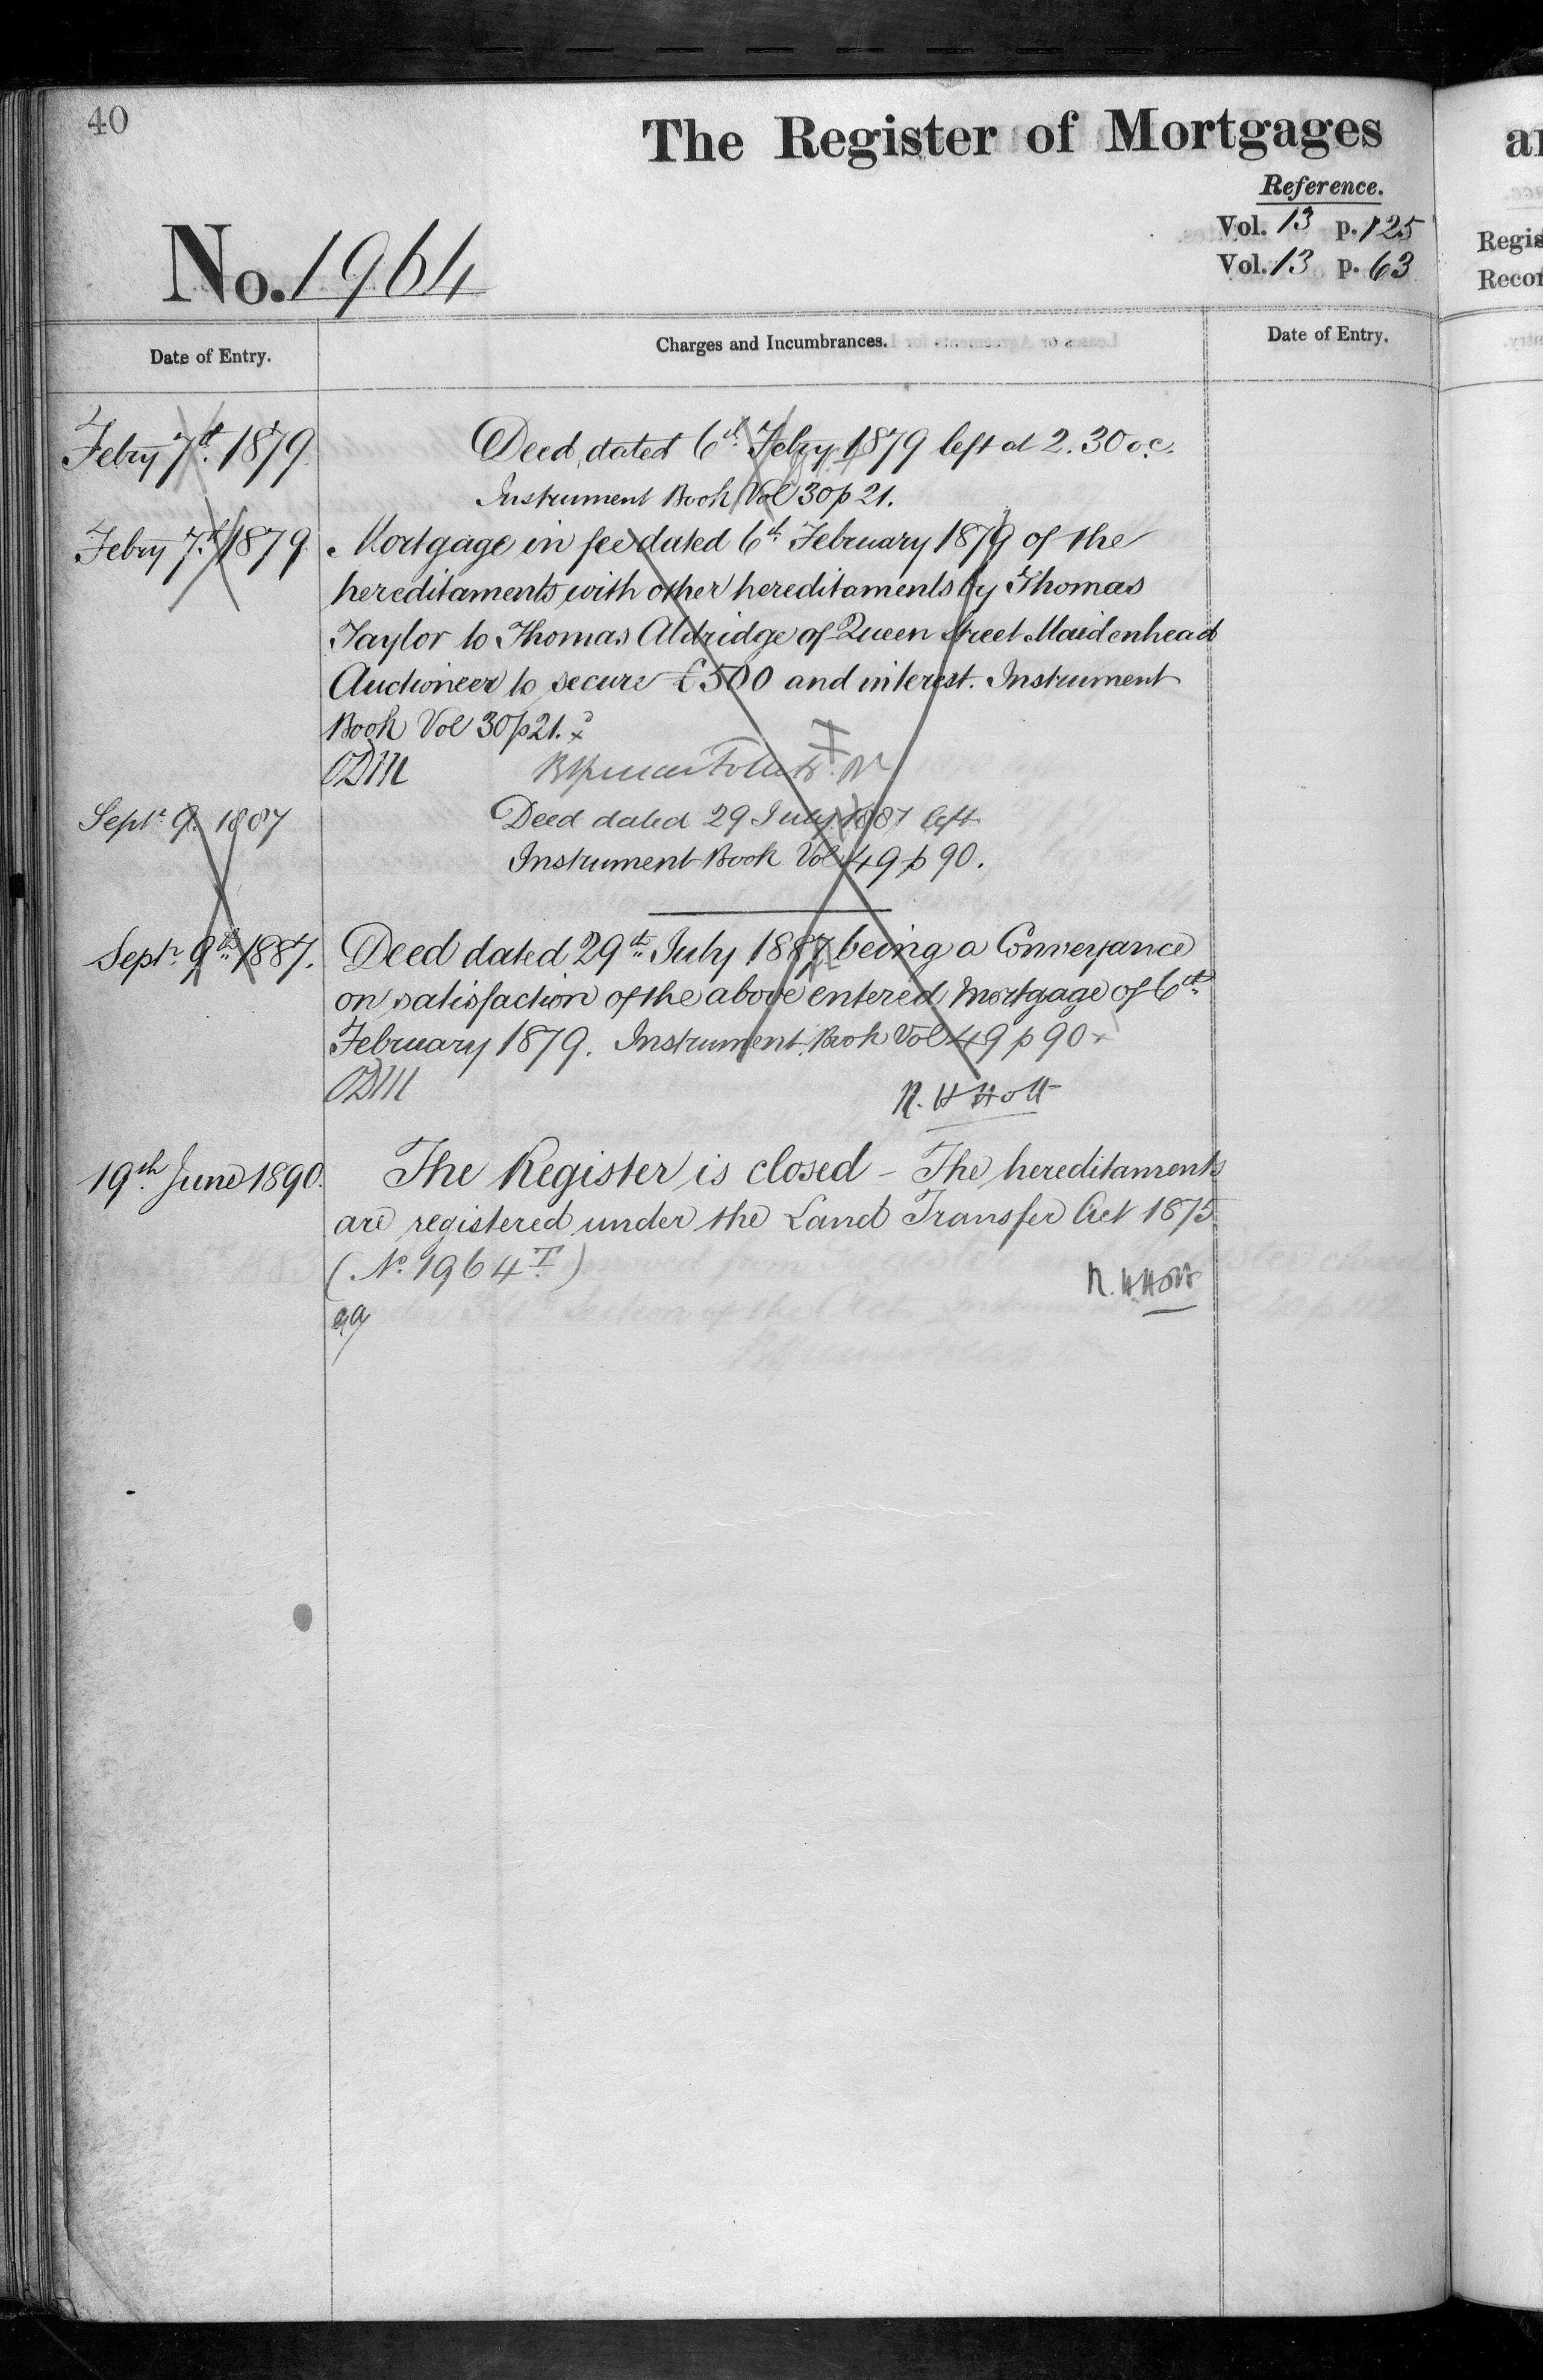 40
The Register of Mortgages
Reference.
Vol. 13 p. 125
Vol. 13 p. 63
No. 1964
Date of Entry.
Charges and Incumbrances.
Date of Entry.
Febry 7th. 1879
Deed dated 6th Febry 1879 left at 2.30 oc.
Instrument Book Vol 30 p 21.
Febry 7th 1879
Mortgage in fee dated 6th February 1879 of the
hereditaments with other hereditaments by Thomas
Taylor to Thomas Aldridge of Queen Street Maidenhead
Auctioneer to secure £500 and interest. Instrument
Book Vol 30 p 21.
ODM
Septr 9. 1887
Deed dated 29 July 1887 left
Instrument Book Vol 49 p 90.
Septr 9th 1887.
Deed dated 29th July 1887 being a Conveyance
on satisfaction of the above entered Mortgage of 6th
February 1879. Instrument Book Vol 49 p 90
ODM
R. H Holt
19th June 1890.
The Register is closed – The hereditaments
are registered under the Land Transfer Act 1875
(No. 1964 T.)
R. H Holt
ar
Regis
Recor